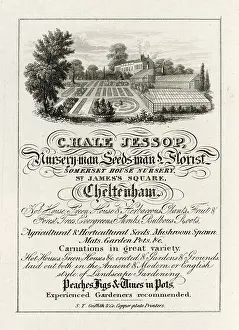 C. HALE JESSOP,
Nursery-man Seeds-man & Florist,
SOMERSET HOUSE NURSERY,
ST JAMES'S SQUARE,
Cheltenham.
Hot House, Green House & Herbaceous Plants, Fruit &
Forest Trees, Evergreens, Shrubs, Bulbous Roots,
Agricultural & Horticultural Seeds, Mushroom Spawn
Mats, Garden Pots, &c.
Carnations in great variety.
Hot Houses, Green Houses &c erected & Gardens & Grounds
laid out both in the Ancient & Modern or English
style of Landscape Gardening.
Peaches, Figs & Vines in Pots.
Experienced Gardeners recommended.
S. Y. Griffith & Co. Copper-plate Printers.